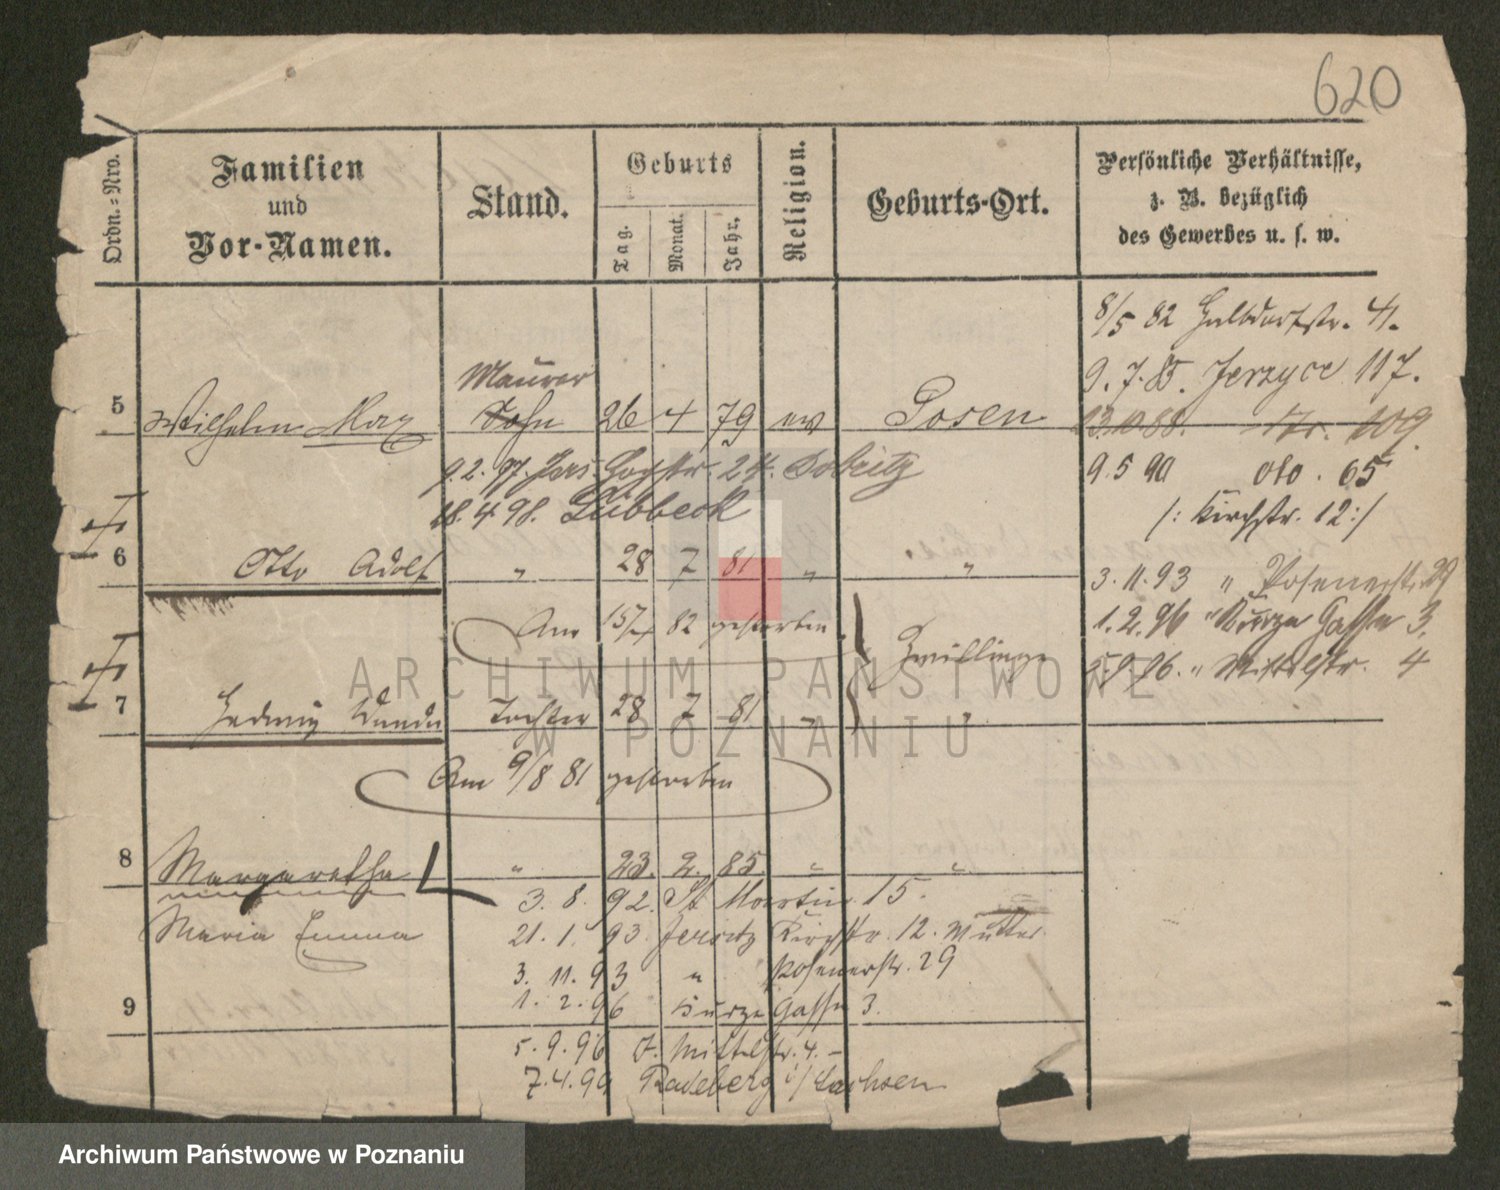 620
Ordn.-Nro.
Familien und Vor-Namen.
Stand.
Geburts
Tag. Monat. Jahr.
Religion.
Geburts-Ort.
Persönliche Verhältnisse, z. B. bezüglich des Gewerbes u. s. w.
8/5 82 Halbdorfstr. 4.
9.7.85. Jerzyce 117.
Maurer
5 Wilhelm Max Sohn 26 4 79 ev Posen
13.10 88. Nr. 109
9.2.97. Hochstr. 24. Dobritz
9.5 90 dto. 65
18.4.98. Lübbeck
/: Kirchstr. 12:/
6 Otto Adolf " 28 7 81 " "
3.11.93 " Posenerstr. 29
Am 15/ 82 gestorben
1.2.96 " Kurze Gasse 3.
Zwillinge
5.9.96. " Mittelstr. 4
7 Hedwig Wanda Tochter 28 7 81 " "
Am 9/8 81 gestorben
8 Margaretha " 23. 2. 85 " "
3. 8. 92. St Martin 15.
Maria Emma
21. 1. 93. Jersitz Kirchstr. 12. Mutter
3. 11. 93 " Posenerstr. 29
9
1. 2. 96 Kurze Gasse 3.
5. 9. 96 J. Mittelstr. 4. –
7.4.99 Radeberg i/Sachsen
ARCHIWUM PAŃSTWOWE
W POZNANIU
Archiwum Państwowe w Poznaniu